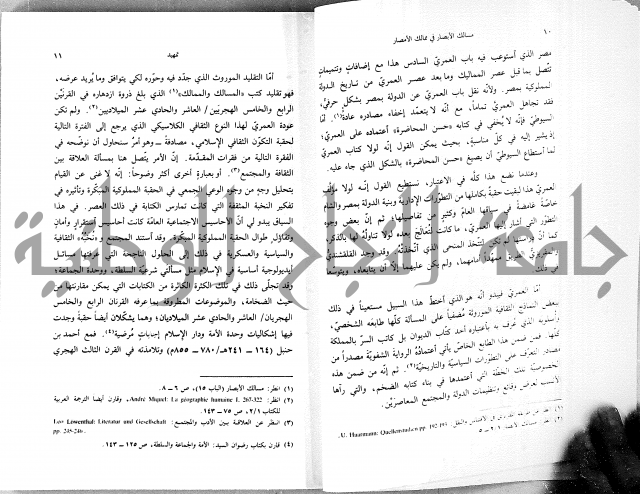 ١٠
مسالك الأبصار في ممالك الأمصار
مصر الذي أستوعب فيه باب العمريّ السادس هذا مع إضافات وتتميمات
تتّصل بما قبل عصر المماليك وما بعد عصر العمريّ عن تاريخ الدولة
المملوكية بمصر. ولأنه نقل باب العمريّ عن الدولة بمصر بشكلٍ حرفيّ،
فقد تجاهل العمريّ تماماً، مع أنّه لا يتعمّد إخفاء مصادره عادةً(١). كما أنّ
السيوطيّ فإنّه لا يُخفي في كتابه «حسن المحاضرة» أعتماده على العمريّ؛
إذ يشير إليه في كلّ مناسبةٍ، بحيث يمكن القول إنّه لولا كتاب العمريّ
لما أستطاع السيوطيّ أن يصوغ «حسن المحاضرة» بالشكل الذي جاء عليه.
وعندما نضع هذا كلّه في الاعتبار، نستطيع القول إنّه لولا مؤلَّف
العمريّ هذا لبقيت حقبة بكاملها من التطوّرات الإدارية وبنية الدولة بمصر والشام
خاصةً غامضةً في سياقها العامّ وكثير من تفاصيلها؛ ثم إنّ بعض وجوه
التطوّر التي أشار إليها العمريّ، ما كانت لتُعالَج بعده لولا تناوله لها بالذكر،
أمّا العمريّ فيبدو أنّه هو الذي أختطّ هذا السبيل مستعيناً في ذلك
ببعض النماذج الثقافية الموروثة مُضفياً على المسألة كلّها طابعه الشخصيّ،
وأسلوبه الذي عُرف به بأعتباره أحد كتّاب الديوان بل كاتب السرّ بالمملكة
كلّها. فمن ضمن هذا الطابع الخاصّ يأتي أعتماده الرواية الشفويّة مصدراً من
مصادر التعرّف على التطوّرات السياسية والتاريخية(٢). ثم إنّه من ضمن هذه
الخصوصيّة تلك الخطّة التي أعتمدها في بناء كتابه الضخم، والتي رآها
أنسب لعرض وقائع وتنظيمات الدولة والمجتمع المعاصرَيْن.
U. Haarmann: Quellenstudien pp. 192-193
تمهيد
١١
أمّا التقليد الموروث الذي جدّد فيه وحوّره لكي يتوافق وما يُريد عرضه،
فهو تقليد كتب «المسالك والممالك»(١) الذي بلغ ذروة ازدهاره في القرنَين
الرابع والخامس الهجريَّين/ العاشر والحادي عشر الميلاديين(٢). ولم تكن
عودة العمريّ لهذا النوع الثقافي الكلاسيكي الذي يرجع إلى الفترة التالية
لحقبة التكوّن الثقافي الإسلامي، مصادفةً ــ وهو أمرٌ سنحاول أن نوضّحه في
الفقرة التالية من فقرات المقدّمة. إنّ الأمر يتّصل هنا بمسألة العلاقة بين
الثقافة والمجتمع(٣). أو بعبارةٍ أخرى أكثر وضوحاً: إنّه لا غنى عن القيام
بتحليل وجهٍ من وجوه الوعي الجمعي في الحقبة المملوكية المبكّرة وتأثيره في
تفكير النخبة المثقفة التي كانت تمارس الكتابة في ذلك العصر. في هذا
السياق يبدو لي أنّ الأحاسيس الاجتماعية العامّة كانت أحاسيس أستقرارٍ وأمانٍ
وتفاؤلٍ طوال الحقبة المملوكية المبكّرة. وقد أستند المجتمع و«نُخَبُه» الثقافية
والسياسية والعسكرية في ذلك إلى الحلول الناجحة التي عرفتها مسائل
إيديولوجية أساسية في الإسلام مثل مسألتي شرعية السلطة، ووحدة الجماعة؛
وقد تجلّى ذلك في تلك الكثرة الكاثرة من الكتابات التي يمكن مقارنتها من
حيث الضخامة، والموضوعات المطروقة بما عرفه القرنان الرابع والخامس
الهجريان/ العاشر والحادي عشر الميلاديان؛ وهما يشكّلان أيضاً حقبةً وجدت
فيها إشكاليات وحدة الأمة ودار الإسلام إجاباتٍ مُرضية(٤). فمع أحمد بن
حنبل (١٦٤ ــ ٢٤١هـ/٧٨٠ ــ ٨٥٥م) وتلامذته في القرن الثالث الهجري
(١) انظر: مسالك الأبصار (الباب ١٥)، ص ٦ ــ ٨.
(٢) انظر: André Miquel: La géographie humaine I. 267-322، وقارن أيضاً الترجمة العربية
للكتاب ٢/١، ص ٧٥ ــ ١٤٣.
(٣) انظر عن العلاقة بين الأدب والمجتمع: Leo Löwenthal: Literatur und Gesellschaft
pp. 245-246.
(٤) قارن بكتاب رضوان السيد: الأمة والجماعة والسلطة، ص ١٢٥ ــ ١٤٣.
جامعة النجاح الوطنية